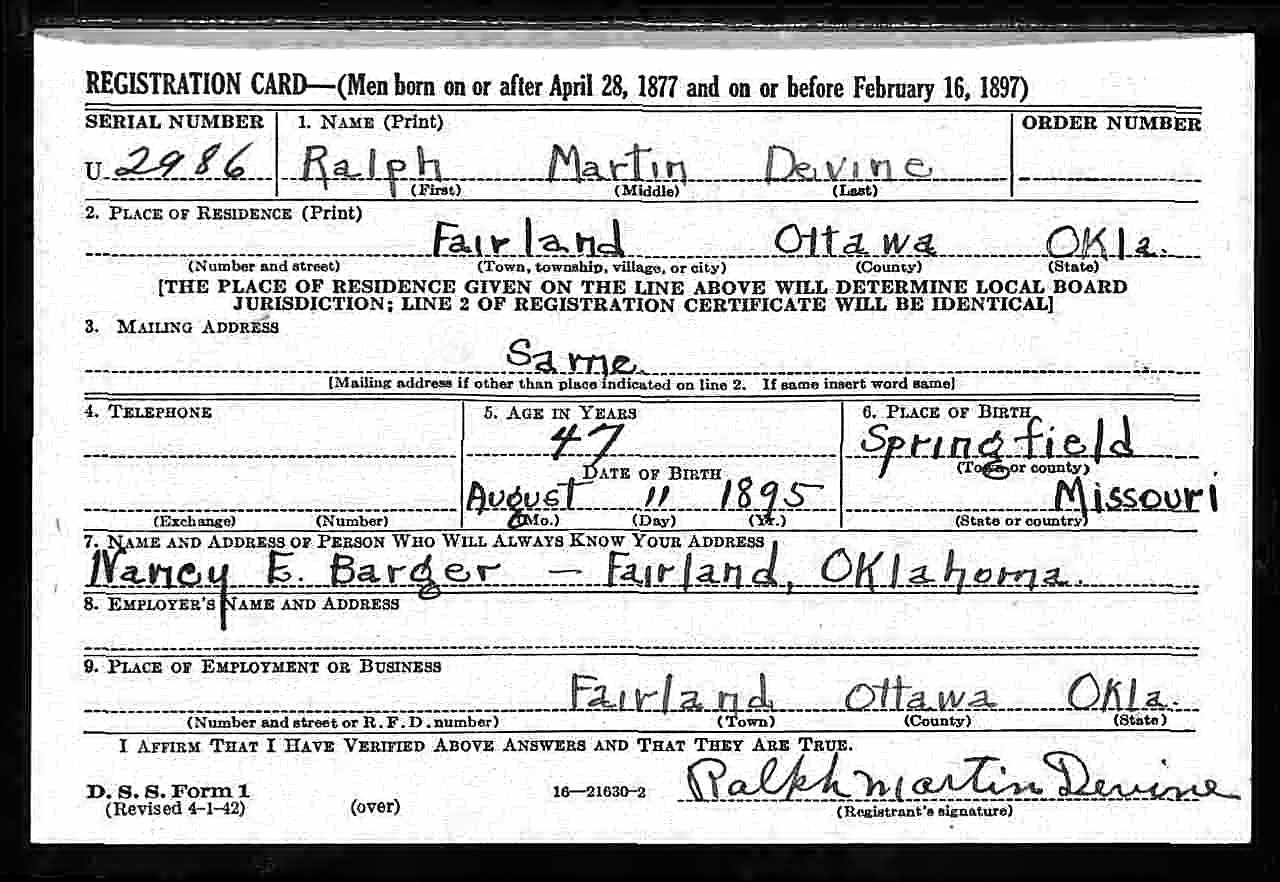 REGISTRATION CARD—(Men born on or after April 28, 1877 and on or before February 16, 1897)
SERIAL NUMBER 1. NAME (Print) ORDER NUMBER
U 2986 Ralph Martin Devine
(First) (Middle) (Last)
2. PLACE OF RESIDENCE (Print)
Fairland Ottawa Okla.
(Number and street) (Town, township, village, or city) (County) (State)
[THE PLACE OF RESIDENCE GIVEN ON THE LINE ABOVE WILL DETERMINE LOCAL BOARD
JURISDICTION; LINE 2 OF REGISTRATION CERTIFICATE WILL BE IDENTICAL]
3. MAILING ADDRESS
Same
[Mailing address if other than place indicated on line 2. If same insert word same]
4. TELEPHONE 5. AGE IN YEARS 6. PLACE OF BIRTH
47 Springfield
DATE OF BIRTH (Town or county)
August 11 1895 Missouri
(Exchange) (Number) (Mo.) (Day) (Yr.) (State or country)
7. NAME AND ADDRESS OF PERSON WHO WILL ALWAYS KNOW YOUR ADDRESS
Nancy E. Barger — Fairland, Oklahoma.
8. EMPLOYER'S NAME AND ADDRESS
9. PLACE OF EMPLOYMENT OR BUSINESS
Fairland Ottawa Okla.
(Number and street or R. F. D. number) (Town) (County) (State)
I AFFIRM THAT I HAVE VERIFIED ABOVE ANSWERS AND THAT THEY ARE TRUE.
D. S. S. Form 1
(Revised 4-1-42) (over) 16—21630-2 Ralph Martin Devine
(Registrant's signature)